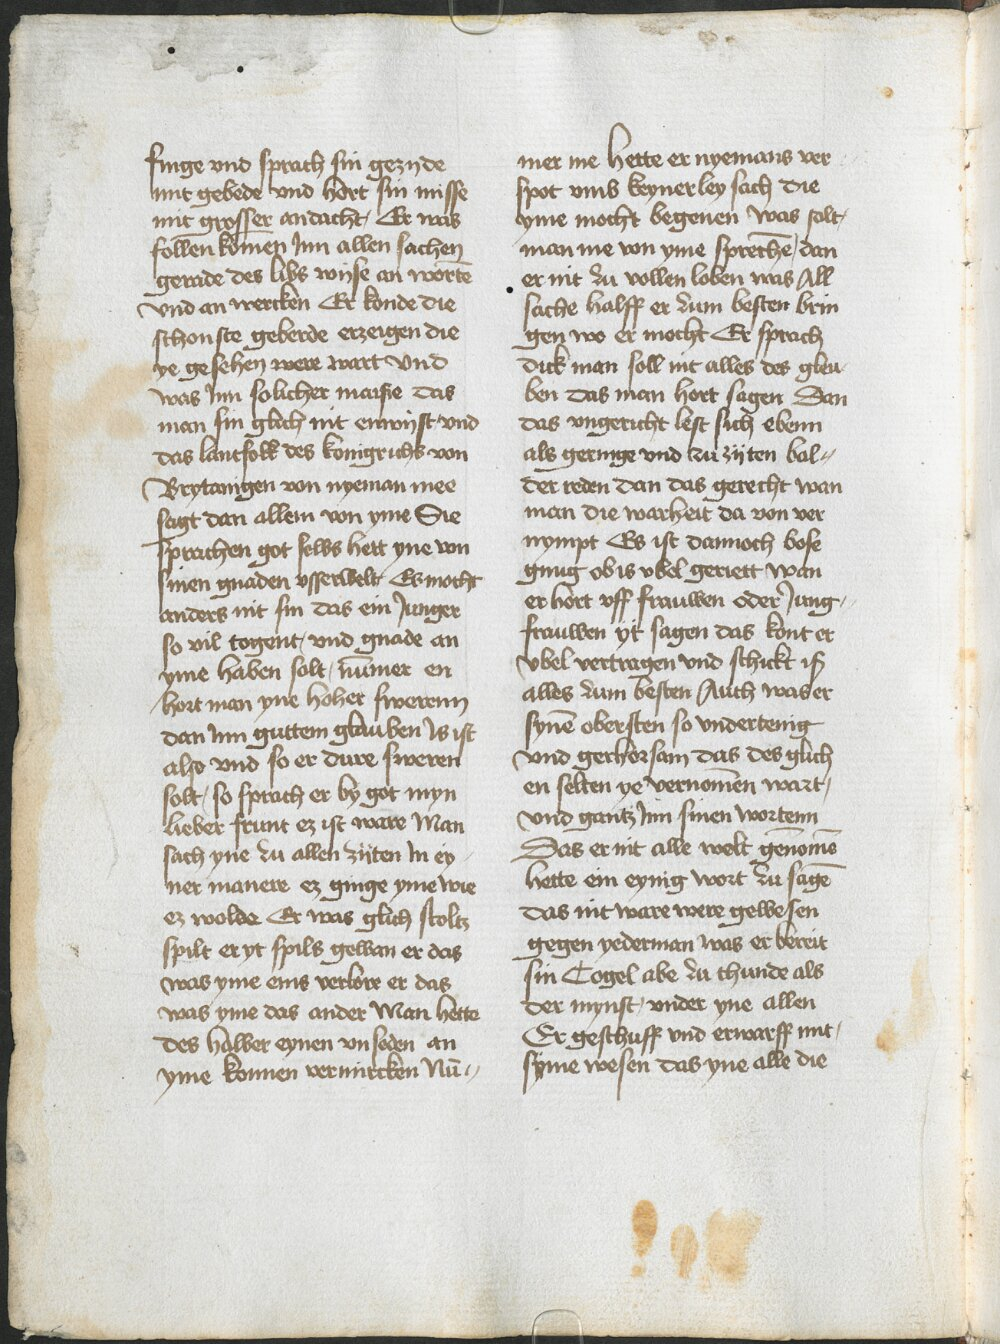 finge vnd sprach sin gezijde
mit gebede vnd hort sin misse
mit grosser andacht Er was
follen komen Jnn allen sachen
gerade des libs wise an wortē
vnd an wercken Er konde die
schonste geberde erzeigen die
ye gesehen were wart vnd
was Jnn solicher maiße das
man sin glich nit enwist vnd
das lantfolk des konigrichs von
Brytanigen von nyeman mee
sagt dan allein von yme Sie
sprachen got selbs hett yne von
sinen gnaden vsserwelt Es mocht
anders nit sin das ein Junger
so vil togent vnd gnade an
yme haben solt nūmer en
hort man yne hoher swerenn
dan Jnn guttem glauben Js ist
also vnd so er dure sweren
solt so sprach er by got myn
lieber frunt ez ist ware Man
sach yne zu allen zijten Jn ey
ner manere ez ginge yme wie
ez wolde Er was glich stoltz
spilt er yt spils gewan er das
was yme eins verlore er das
was yme das ander Man hette
des halber eynen vnseden an
yme konnen vermircken Nū=
mer me hette er nyemans ver
spot vmb keynerley sach die
yme mocht begenen was solt
man me von yme sprechē dan
er nit zu vollen loben was All
sache halff er zum besten brin
gen wo er mocht Er sprach
dick man soll nit alles des gleu
ben das man hort sagen Dan
das vngericht lest sich ebenn
als geringe vnd zu zijten bal=
der reden dan das gerecht wan
man die warheit da von ver
nympt Es ist dannoch bose
gnug ob is vbel geriett wan
er hort vff frauwen oder Jung
frauwen yt sagen das kont er
vbel vertragen vnd schickt iß
alles zum besten Auch was er
synē obersten so vndertenig
vnd gerhorsam das des glich
en selten ye vernomen wart
vnd gantz Jnn sinen wortenn
Das er nit alle welt genomē
hette ein eynig wort zu sagē
das nit ware were gewesen
gegen yederman was er bereit
sin Cogel abe zu thunde als
der mynst vnder yne allen
Er geschuff vnd erwarff mit
syme wesen das yne alle die